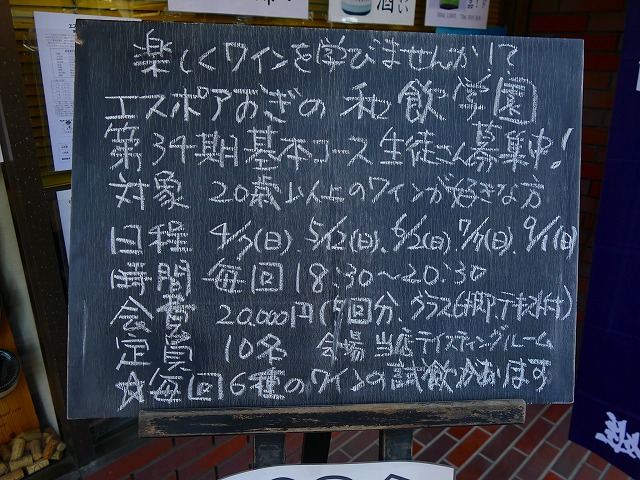 酒
楽しくワインを学びませんか!?
エスポアおぎの 和飲学園
第34期基本コース生徒さん募集中!
対象 20歳以上のワインが好きな方
日程 4/7(日)、5/12(日)、6/2(日)、7/7(日)、9/1(日)
時間 毎回 18:30〜20:30
会費 20.000円(5回分、グラス6脚、テキスト付)
定員 10名 会場 当店テイスティングルーム
☆毎回6種のワインの試飲があります